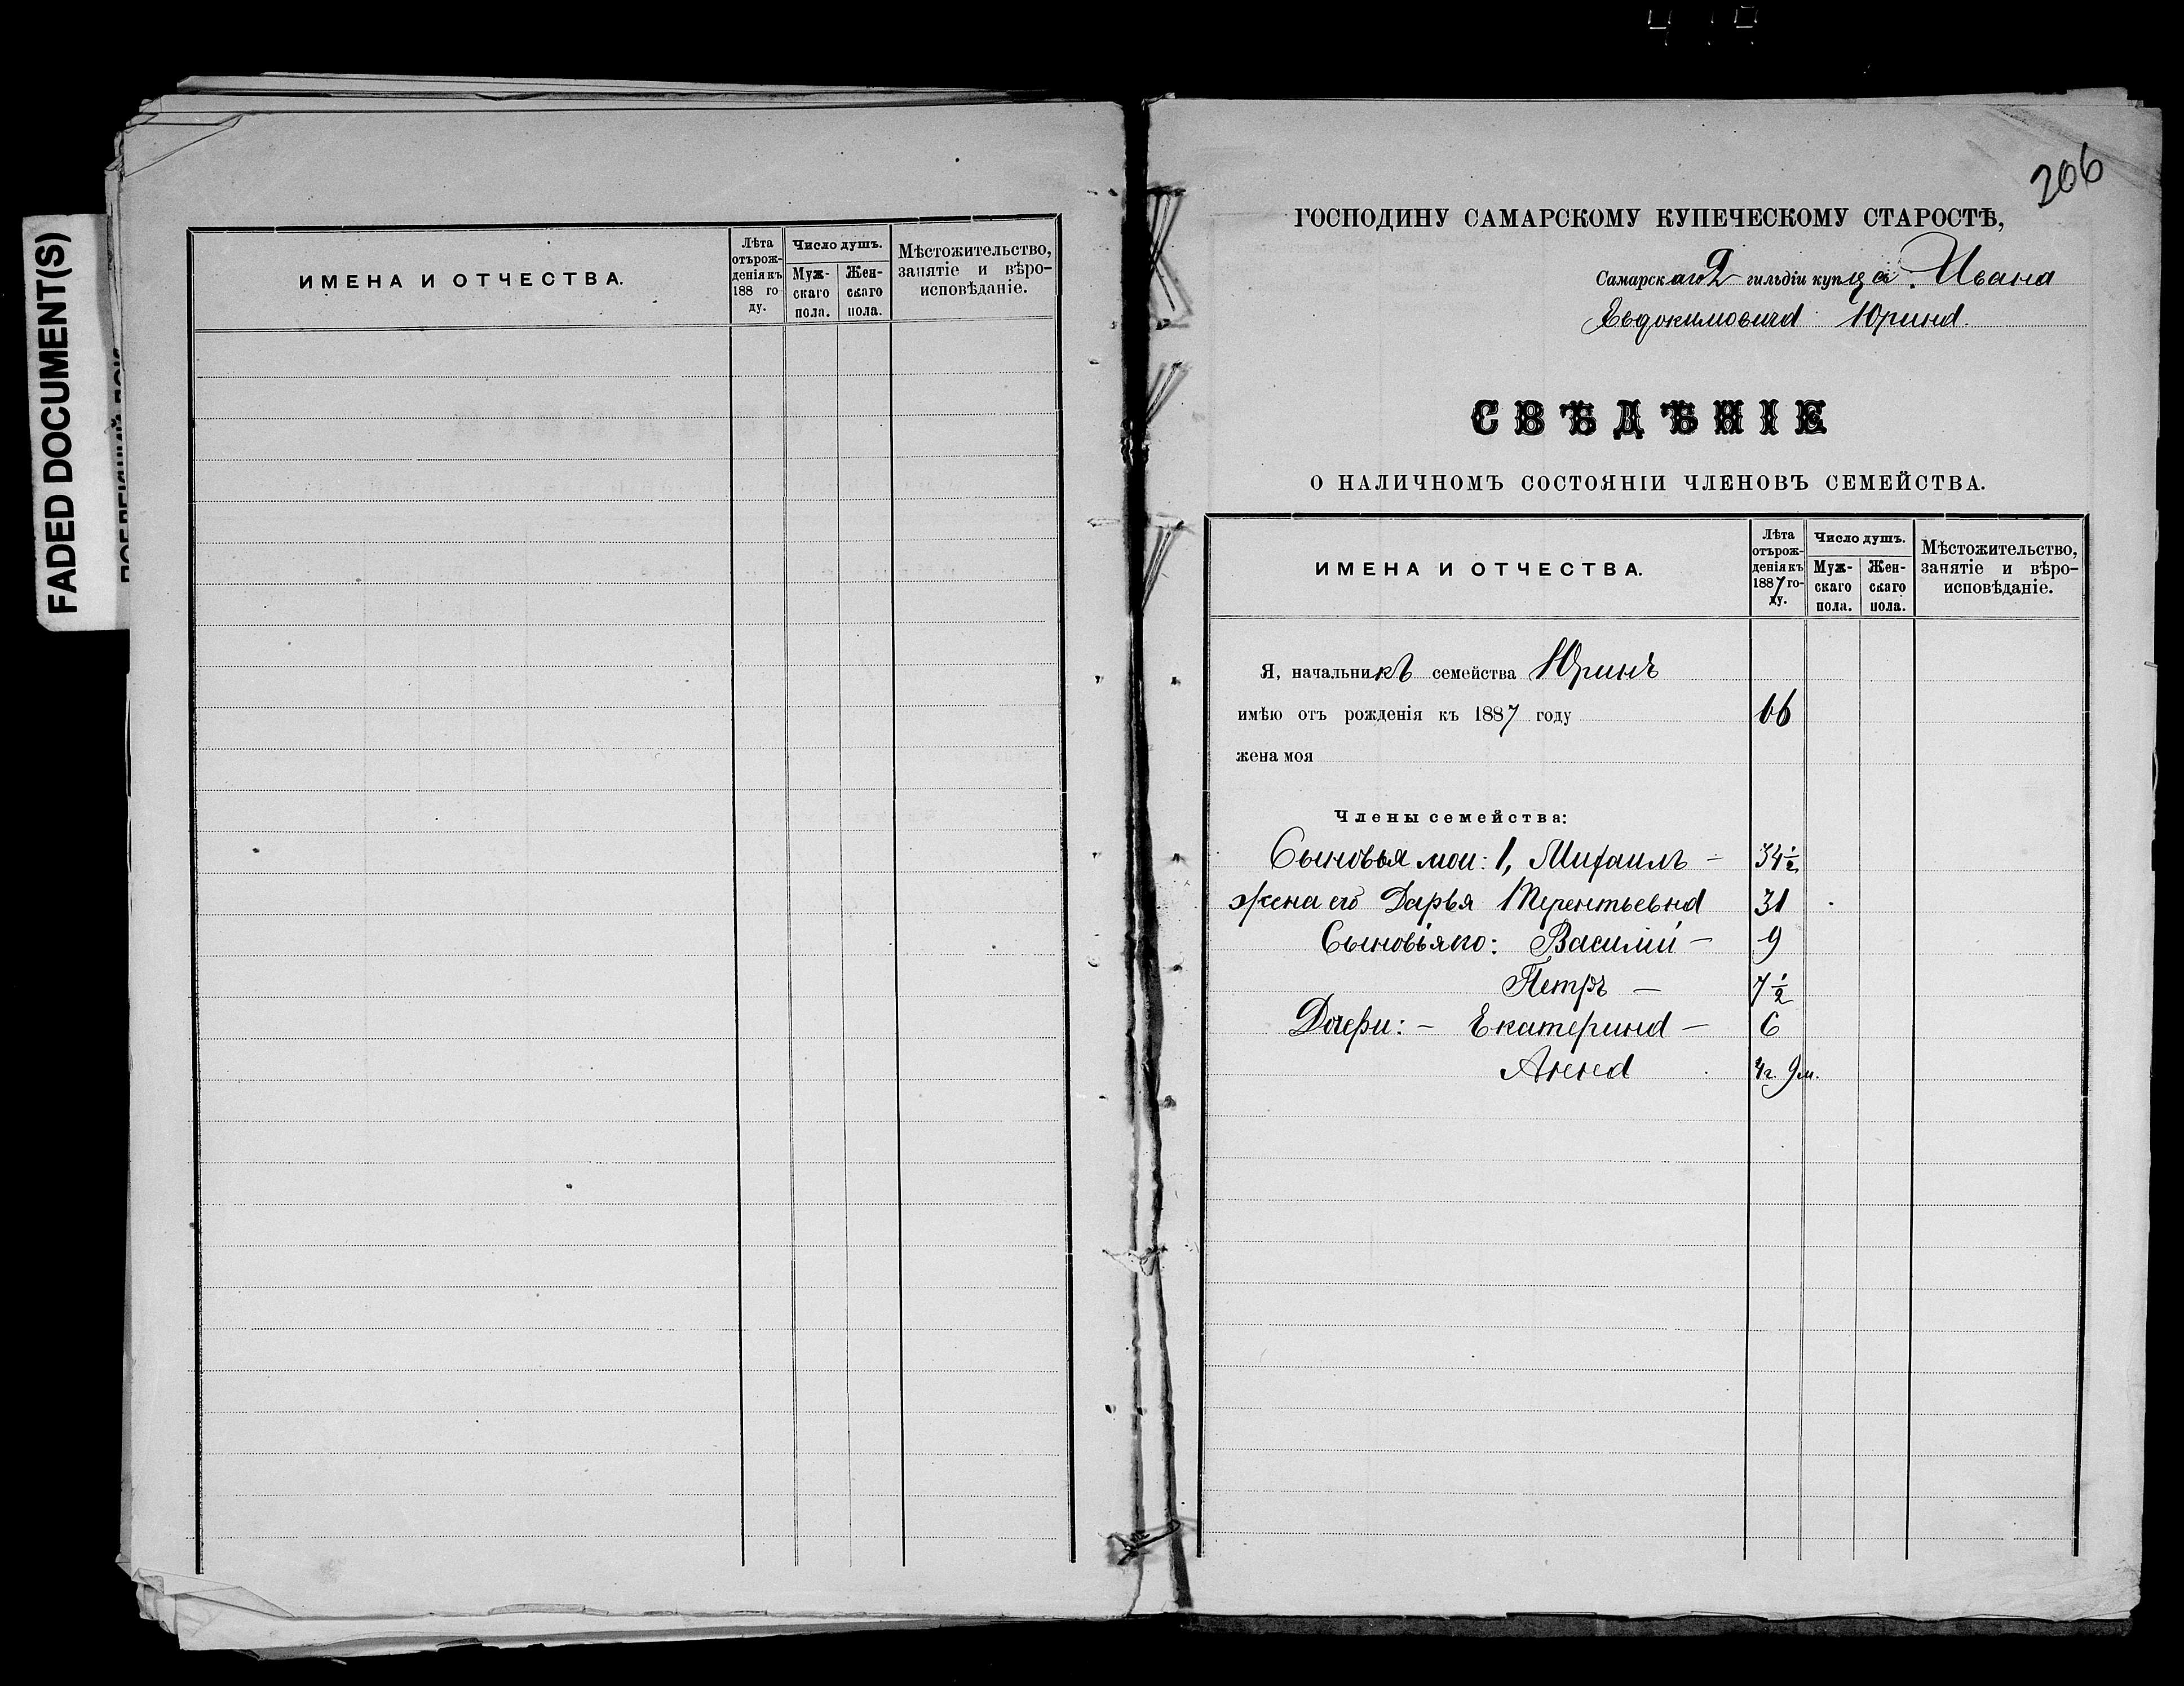 FADED DOCUMENT(S)
ИМЕНА И ОТЧЕСТВА.
Лѣта
отърож-
денія къ
188 го
ду.
Число душъ.
Муж-
скаго
пола.
Жен-
скаго
пола.
Мѣстожительство,
занятіе и вѣро-
исповѣданіе.
206
ГОСПОДИНУ САМАРСКОМУ КУПЕЧЕСКОМУ СТАРОСТѢ,
Самарскаго 2 гильдіи купца Ивана
Евдокимовича Юрина.
СВѢДѢНІЕ
О НАЛИЧНОМЪ СОСТОЯНІИ ЧЛЕНОВЪ СЕМЕЙСТВА.
ИМЕНА И ОТЧЕСТВА.
Лѣта
отърож-
денія къ
1887 го-
ду.
Число душъ.
Муж-
скаго
пола.
Жен-
скаго
пола.
Мѣстожительство,
занятіе и вѣро-
исповѣданіе.
Я, начальникъ семейства Юринъ
имѣю отъ рожденія къ 1887 году 66
жена моя
Члены семейства:
Сыновья мои: 1, Михаилъ – 34½
жена его Дарья Терентьевна 31
Сыновья его: Василій – 9
Петръ – 7½
Дочери: – Екатерина – 6
Анна 4г. 9м.